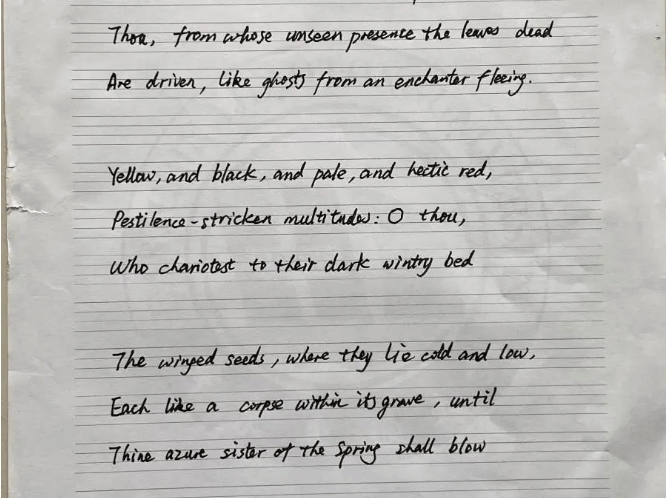 Thou, from whose unseen presence the leaves dead
Are driven, like ghosts from an enchanter fleeing.
Yellow, and black, and pale, and hectic red,
Pestilence-stricken multitudes: O thou,
Who chariotest to their dark wintry bed
The winged seeds, where they lie cold and low,
Each like a corpse within its grave, until
Thine azure sister of the Spring shall blow